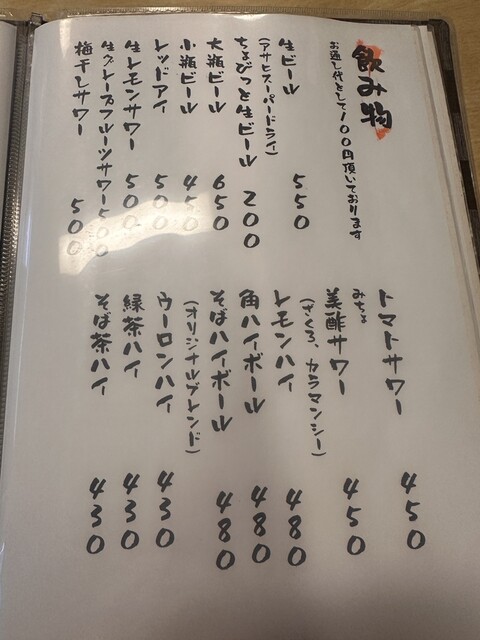 飲み物
お通し代として100円頂いております
生ビール 550
(アサヒスーパードライ)
ちょびっと生ビール 200
大瓶ビール 650
小瓶ビール 450
レッドアイ 500
生レモンサワー 500
生グレープフルーツサワー 500
梅干しサワー 500
トマトサワー 450
みちょ
美酢サワー 450
(ざくろ、カラマンシー)
レモンハイ 480
角ハイボール 480
そばハイボール 480
(オリジナルブレンド)
ウーロンハイ 430
緑茶ハイ 430
そば茶ハイ 430